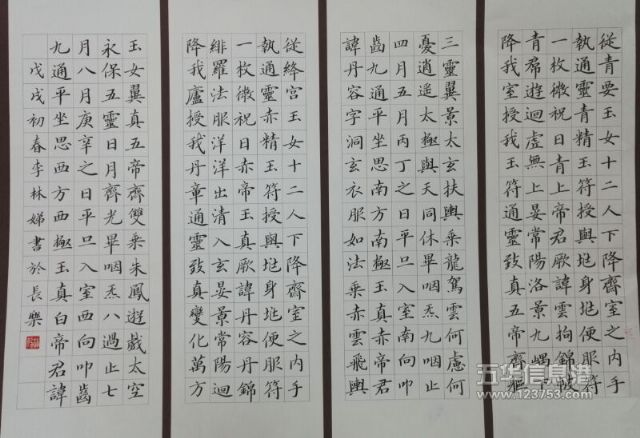 從青要玉女十二人下降齋室之內手
執通靈青精玉符授與兆身兆便服符
一枚微祝曰青上帝君厥諱雲拘錦帔
青帬遊迴虛無上晏常陽洛景九嵎
降我室授我玉符通靈致真五帝齊軀
三靈翼景太玄扶輿乘龍駕雲何慮何
憂逍遙太極與天同休畢咽炁九咽止
四月五月丙丁之日平旦入室南向叩
齒九通平坐思南方南極玉真赤帝君
諱丹容字洞玄衣服如法乘赤雲飛輿
從絳宮玉女十二人下降齋室之內手
執通靈赤精玉符授與兆身兆便服符
一枚微祝曰赤帝玉真厥諱丹容丹錦
緋羅法服洋洋出清入玄晏景常陽迴
降我廬授我丹章通靈致真變化萬方
玉女翼真五帝齊雙乘朱鳳遊戲太空
永保五靈日月齊光畢咽炁八過止七
月八月庚辛之日平旦入室西向叩齒
九通平坐思西方西極玉真白帝君諱
戊戌初春李林娣書於長樂
五华信息港
www.123753.com